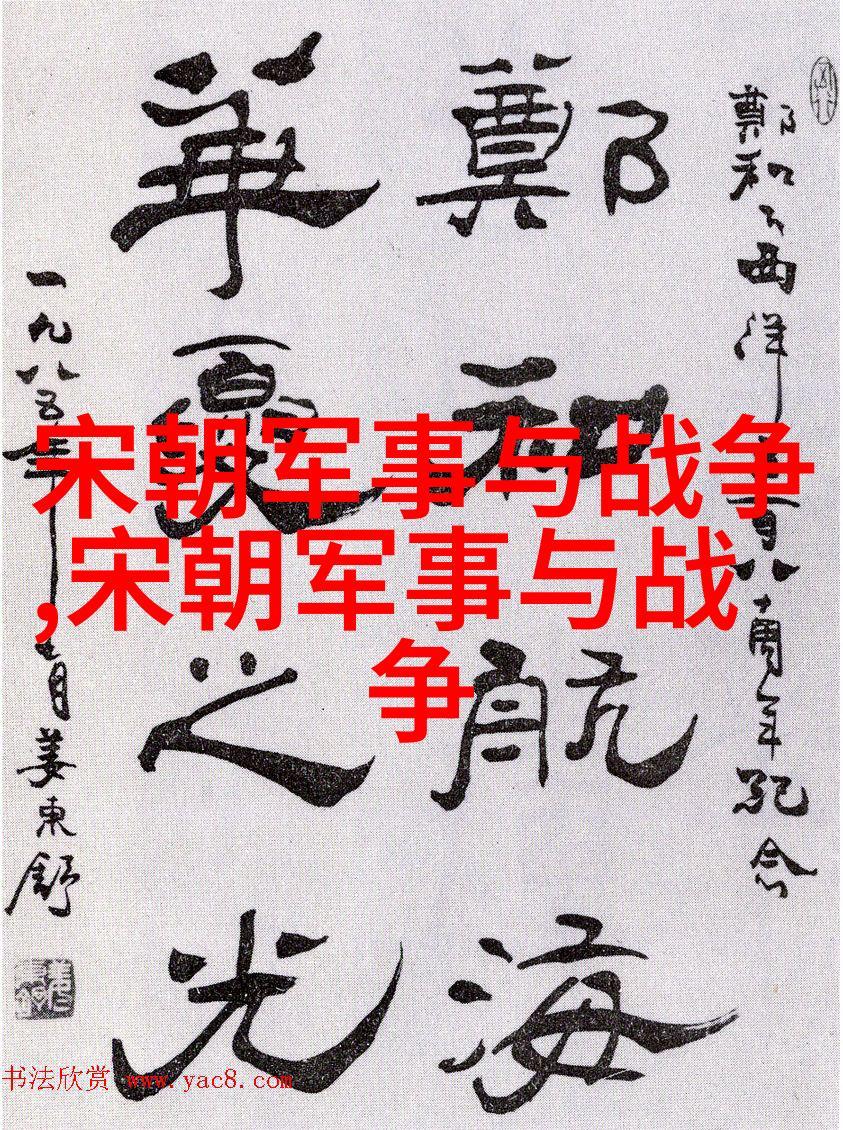 鄭和下西洋百八十周年紀念
鄭和航海
華夏之光
一九八五年月姜東舒
宋朝军事与战争
,宋朝军事与战
争
书法欣赏 www.yac8.com